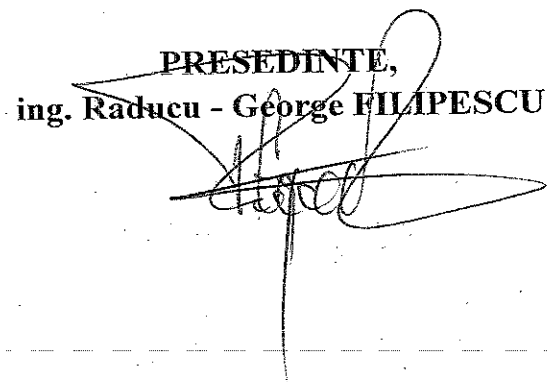 PRESEDINTE,
ing. Raducu - George FILIPESCU